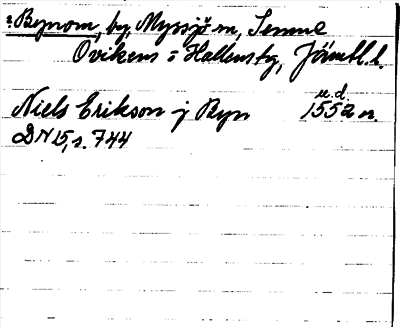 : Bynom, by, Myssjö sn, Sunne
Ovikens o Hallens tg, Jämtl. l.
u.d.
Niels Erikson j Byn 1552 n.
DN 15, s. 744